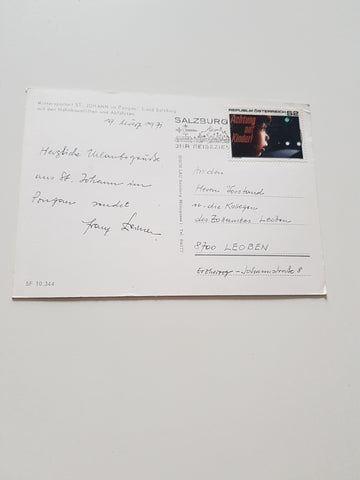 Wintersportort ST. JOHANN im Pongau, Land Salzburg
mit den Hahnbaumliften und Abfahrten
19. März 1971
Herzliche Urlaubsgrüße
aus St. Johann im
Pongau sendet
Franz
SF 10.344
SALZBURG
IHR REISEZIEL
REPUBLIK ÖSTERREICH S2
Achtung
auf
Kinder!
An den
Herrn Vorstand
u. die Kollegen
des Zollamtes Leoben
8700 LEOBEN
Erzherzog-Johannstraße 8